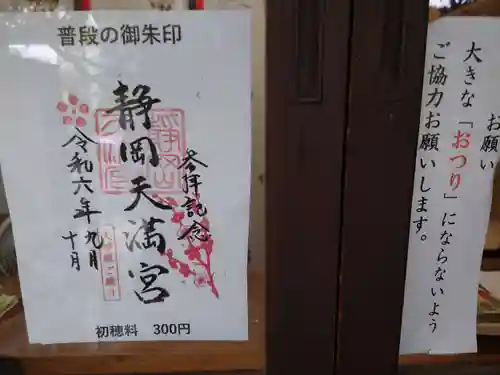 普段の御朱印
参拝記念
静岡天満宮
令和六年 九月
十月
初穂料 300円
お願い
大きな「おつり」にならないよう
ご協力お願いします。